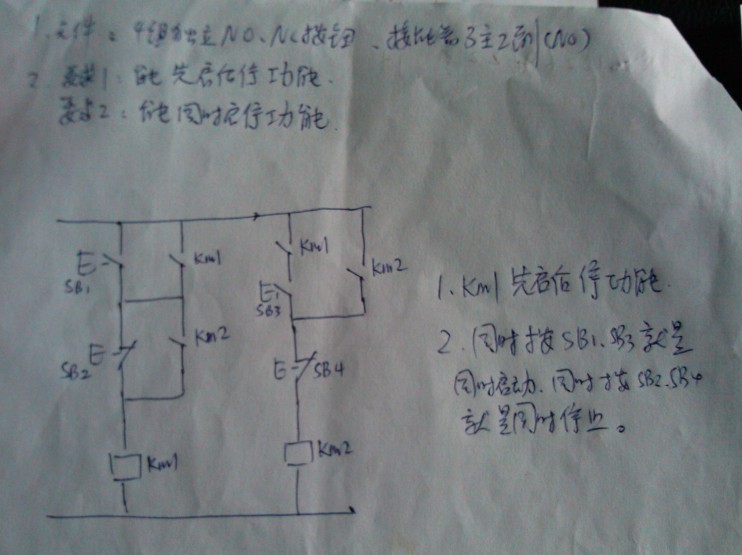 1. 元件：4组独立NO、NC按钮、接触器3主2辅(NO)
2. 要求1：能先启后停功能.
要求2：能同时启停功能.
Km1
E- SB1
Km1
Km2
E- SB3
Km2
E- SB2
E- SB4
Km1
Km2
1. Km1先启后停功能.
2. 同时按SB1、SB3就是
同时启动.同时按SB2.SB4
就是同时停止。